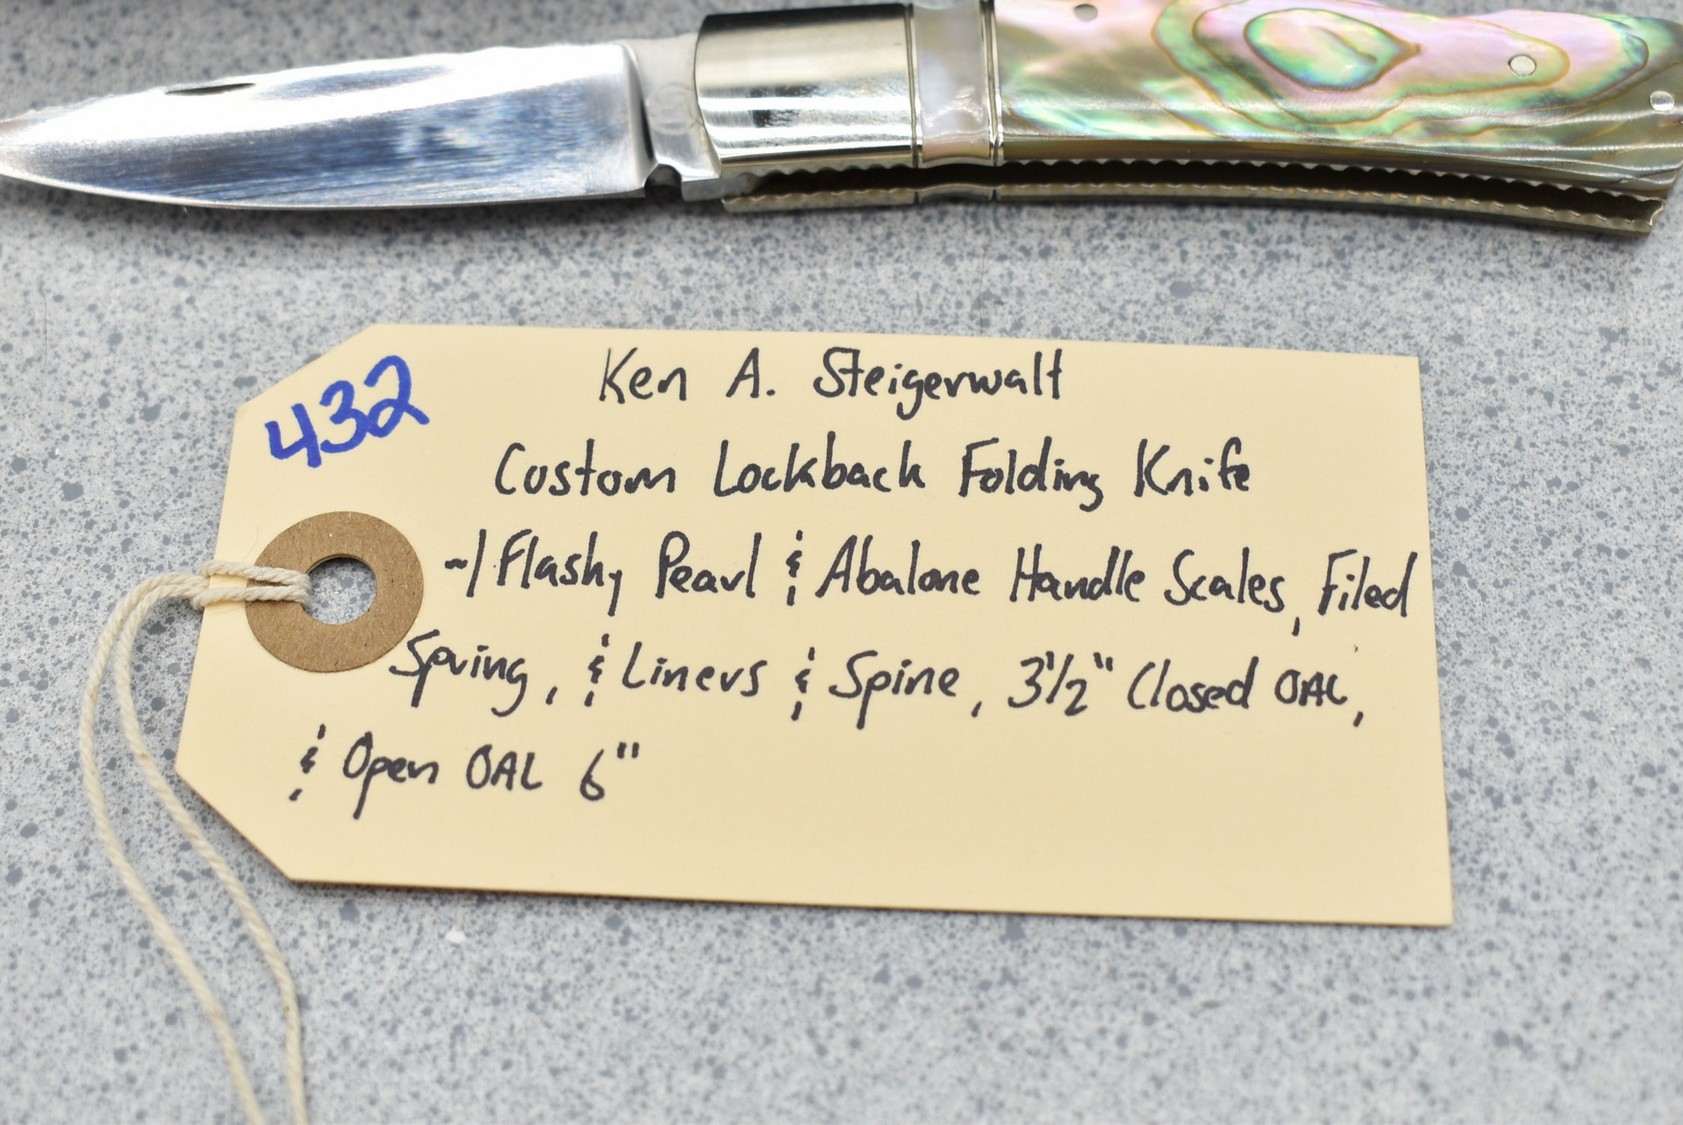 432
Ken A. Steigerwalt
Custom Lockback Folding Knife
w/ Flashy Pearl & Abalone Handle Scales, Filed
Spring, & Liners & Spine, 3 1/2" Closed OAL,
& Open OAL 6"